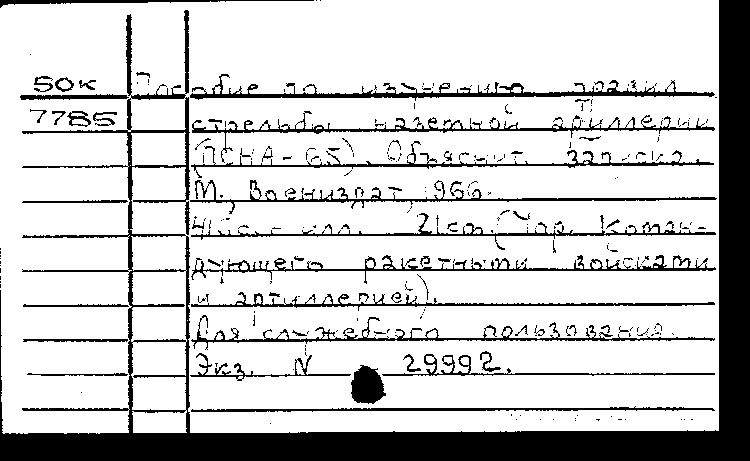 50к Пособие по изучению правил
7785 стрельбы наземной артиллерии
(ПСНА-65). Объяснит. записка.
М., Воениздат, 1966.
с. - илл. 21см. Коман-
дующего ракетными войсками
и артиллерией).
Для служебного пользования.
Экз. N 29992.